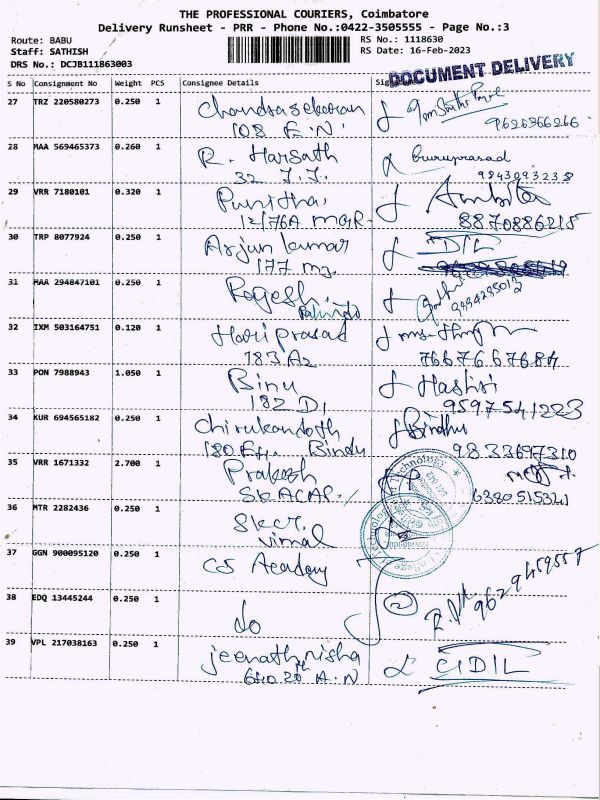 THE PROFESSIONAL COURIERS, Coimbatore
Delivery Runsheet - PRR - Phone No.:0422-3505555 - Page No.:3
Route: BABU
Staff: SATHISH
DRS No.: DCJB111863003
RS No.: 1118630
RS Date: 16-Feb-2023
DOCUMENT DELIVERY
S No Consignment No Weight PCS Consignee Details
27 TRZ 220580273 0.250 1 Chandrasekaran
108 E.N. 9626366266
28 MAA 569465373 0.260 1 R. Harsath Guruprasad
32 J.J. 9843093238
29 VRR 7180101 0.320 1 Punitha
12/76A MGR. 8870886215
30 TRP 8077924 0.250 1 Arjun kumar
177 mg.
31 MAA 294847101 0.250 1 Rogesh
32 IXM 503164751 0.120 1 Hari prasad
183 A2 7667667684
33 PON 7988943 1.050 1 Binu
182 D1 9597541223
34 KUR 694565182 0.250 1 Chirukandoth Bindhu
Bindu 9833697310
35 VRR 1671332 2.700 1 Prakash
SKACAP. 6380515321
36 MTR 2282436 0.250 1
Vimal
37 GGN 900095120 0.250 1 CS Academy
38 EDQ 13445244 0.250 1 do 9629459557
39 VPL 217038163 0.250 1 jeenathnisha CIDIL
A.N